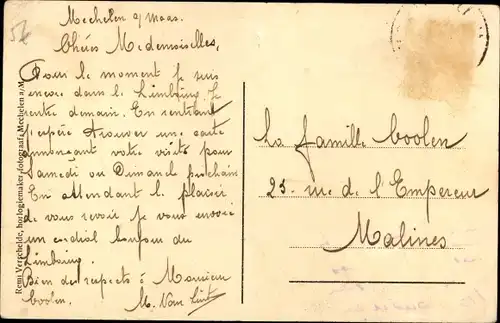 Mechelen a/Maas.
Chères Medemoiselles,
Pour le moment je suis
encore dans le Limbourg. Je
rentre demain. En rentrant
j'espère trouver une carte
annonçant votre visite pour
Samedi ou Dimanche prochain
En attendant le plaisir
de vous revoir je vous envoie
un cordial bonjour du
Limbourg.
Bien des respects à Monsieur
Coolen.
M. Van Lint
La famille Coolen
25. rue de l'Empereur
Malines
Remi Verschelde, horlogiemaker-fotograaf, Mechelen a/M.